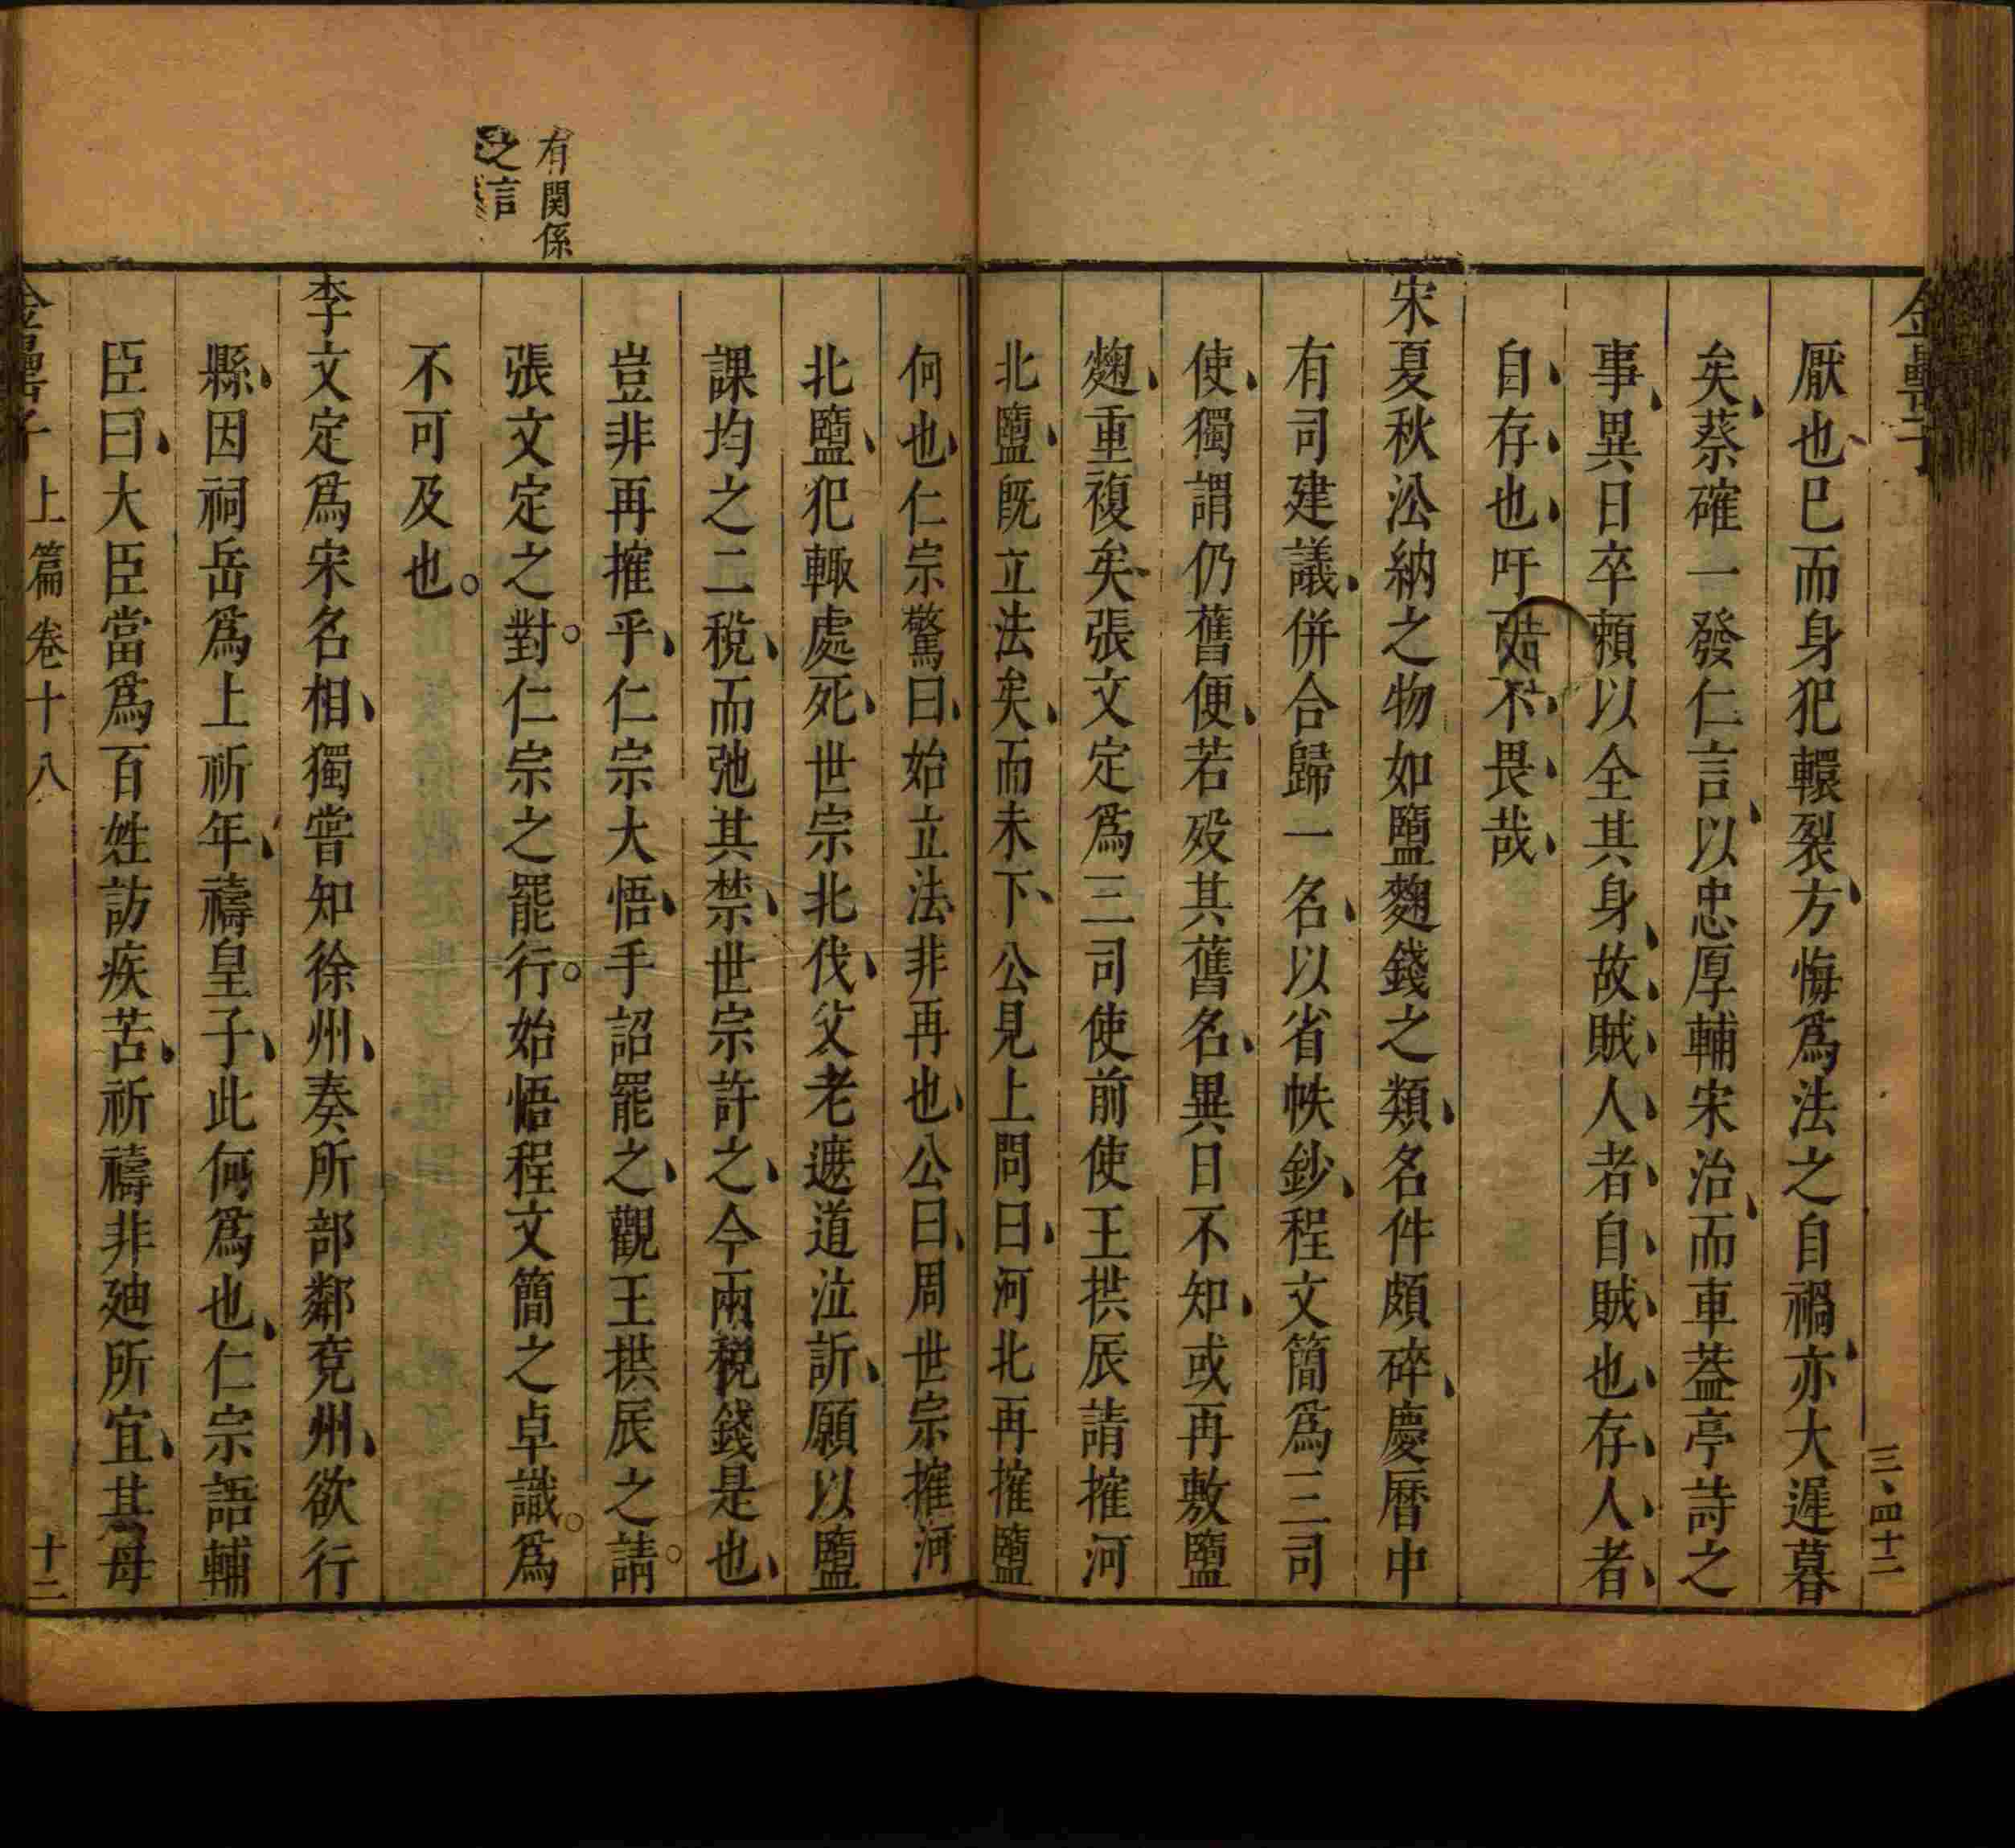 金罍子
三、四十二
厭也巳而身犯轘裂方悔爲法之自禍亦大遲暮
矣蔡確一發仁言以忠厚輔宋治而車葢亭詩之
事異日卒頼以全其身故賊人者自賊也存人者
自存也吁可不畏哉
宋夏秋㳂納之物如鹽麴錢之類名件頗碎慶曆中
有司建議併合歸一名以省帙鈔程文簡爲三司
使獨謂仍舊便若歿其舊名異日不知或再敷鹽
麴重複矣張文定爲三司使前使王拱辰請搉河
北鹽旣立法矣而未下公見上問曰河北再搉鹽
何也仁宗驚曰始立法非再也公曰周世宗搉河
北鹽犯輙處死世宗北伐父老遮道泣訴願以鹽
課均之二稅而弛其禁世宗許之今兩稅錢是也
豈非再搉乎仁宗大悟手詔罷之觀王拱辰之請
張文定之對仁宗之罷行始悟程文簡之卓識爲
不可及也
有関係
之言
李文定爲宋名相獨嘗知徐州奏所部鄰兗州欲行
縣因祠岳爲上祈年禱皇子此何爲也仁宗語輔
臣曰大臣當爲百姓訪疾苦祈禱非廸所宜其毋
金罍子 上篇 卷十八 十二